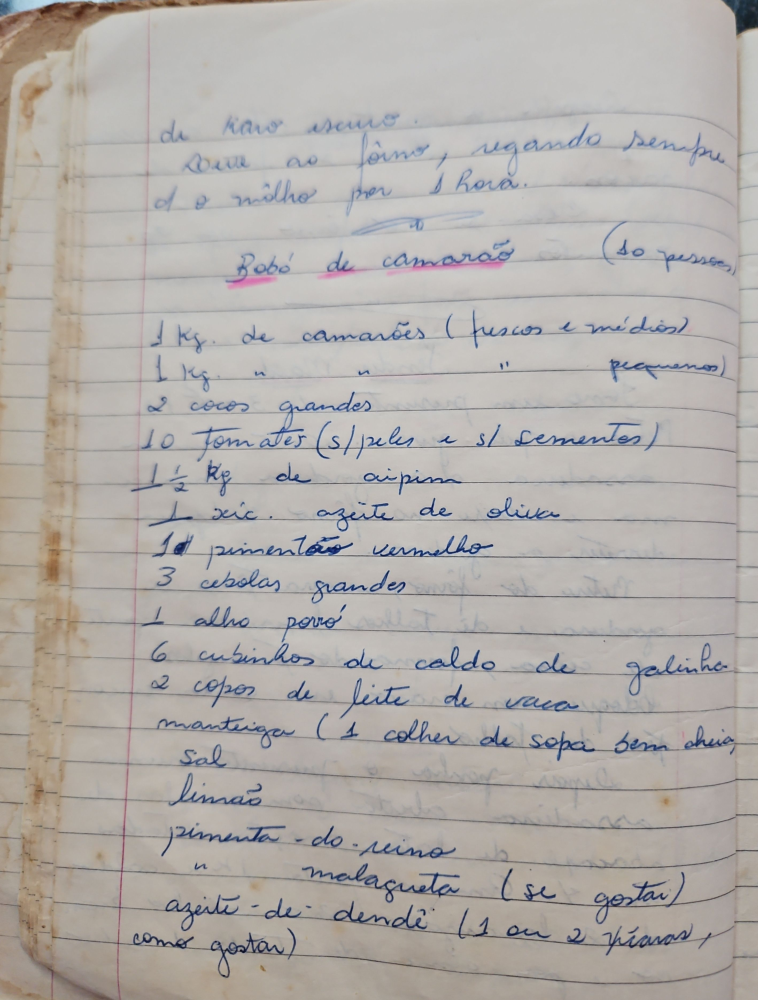 de Karo escuro.
Leve ao fôrno, regando sempre
d o môlho por 1 hora.
Bobó de camarão (10 pessoas)
1 Kg. de camarões (frescos e médios)
1 Kg. " " " pequenos)
2 cocos grandes
10 tomates (s/peles e s/ sementes)
1 1/2 Kg de aipim
1 xíc. azeite de oliva
1 pimentão vermelho
3 cebolas grandes
1 alho poró
6 cubinhos de caldo de galinha
2 copos de leite de vaca
manteiga (1 colher de sopa bem cheia)
sal
limão
pimenta-do-reino
" malagueta (se gostar)
azeite-de-dendê (1 ou 2 xícaras,
como gostar)